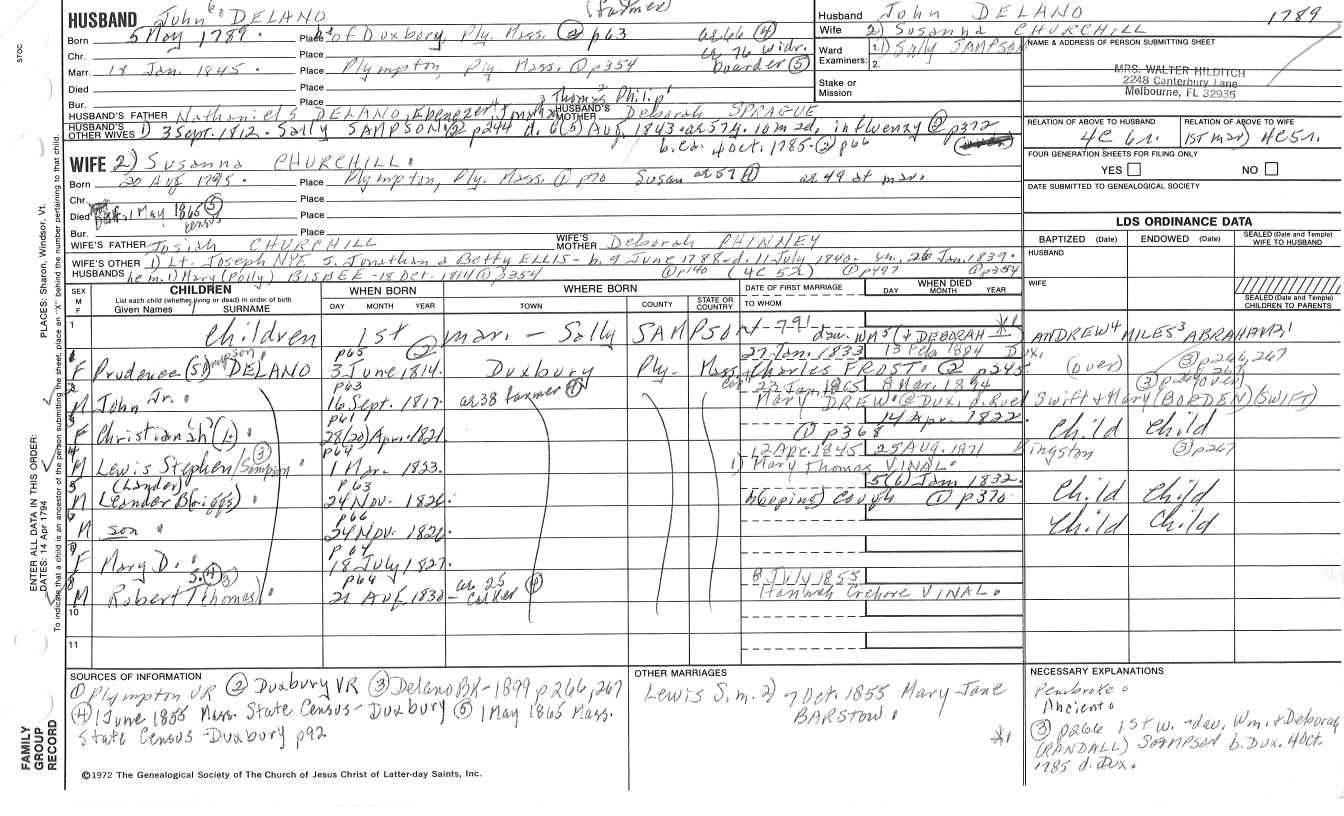 HUSBAND John 6 DELANO (farmer)
Born 5 May 1789. Place of Duxbury, Ply. Mass. ② p63 ae 66 ④
Chr. Place ae 76 widr.
Marr. 18 Jan. 1845. Place Plympton, Ply Mass. ① p354 boarder ⑤
Died Place
Bur. Place Thomas 2 Philip 1
HUSBAND'S FATHER Nathaniel 5 DELANO, Ebenezer 4 HUSBAND'S MOTHER Deborah SPRAGUE
HUSBAND'S OTHER WIVES 1) 3 Sept. 1812. Sally SAMPSON. ② p244 d. 6(5) Aug. 1843. ae 57y. 10m 2d, influenzy ② p372
4 Oct. 1785. ② p66
Husband John DELANO 1789
Wife 2) Susanna CHURCHILL
Ward Examiners: 1. 1) Sally SAMPSON
2.
Stake or Mission
NAME & ADDRESS OF PERSON SUBMITTING SHEET
MRS. WALTER HILDITCH
2248 Canterbury Lane
Melbourne, FL 32935
RELATION OF ABOVE TO HUSBAND RELATION OF ABOVE TO WIFE
4C 6r. (1st mar) 4C5r.
FOUR GENERATION SHEETS FOR FILING ONLY
YES NO
DATE SUBMITTED TO GENEALOGICAL SOCIETY
WIFE 2) Susanna CHURCHILL.
Born 20 Aug 1795. Place Plympton, Ply. Mass. ① p70 Susan ae 59 ④ ae 49 at mar.
Chr. Place
Died 1 May 1865 ⑤ census Place
Bur. Place
WIFE'S FATHER Josiah CHURCHILL WIFE'S MOTHER Deborah PHINNEY
WIFE'S OTHER HUSBANDS 1) Lt. Joseph NYE s. Jonathan & Betty ELLIS - b. 9 June 1788 - d. 11 July 1840. m. 26 Jan. 1839.
he m. 1) Mary (Polly) BISBEE - 18 Oct. 1814 ① p354 ① p140 (4C 5r) ① p497 ① p354
LDS ORDINANCE DATA
BAPTIZED (Date) ENDOWED (Date) SEALED (Date and Temple) WIFE TO HUSBAND
HUSBAND
WIFE
SEALED (Date and Temple) CHILDREN TO PARENTS
SEX M F CHILDREN WHEN BORN WHERE BORN DATE OF FIRST MARRIAGE WHEN DIED
List each child (whether living or dead) in order of birth
Given Names SURNAME DAY MONTH YEAR TOWN COUNTY STATE OR COUNTRY TO WHOM DAY MONTH YEAR
1 Children 1st mar. - Sally SAMPSON - 791 dau. Wm 5 (& DEBORAH *1 ANDREW 4 MILES 3 ABRAHAM 2,1
F Prudence (S) Sampson DELANO p65 ② 3 June 1814. Duxbury Ply. Mass. 27 Jan. 1833 13 Feb 1884 Dux. (over) ③ p266,267
Charles FROST. ② p245
2 M John Jr. p63 16 Sept. 1817. ae 38 farmer ④ 8 Mar. 1894
Mary DREW @ Dux. d. Ruel Swift & Mary (BORDEN) (SWIFT)
3 F Christiana 28(20) Apr. 1821 14 Apr. 1822. ① p368 Child Child
4 M Lewis Stephen/Sampson ③ p64 1 Mar. 1823. 12 Apr. 1845 25 Aug. 1871 Kingston ③ p267
1) Mary Thomas VINAL.
5 M (Lander) Leander B(riggs) p63 24 Nov. 1826. 5(6) Jan 1832. (hooping) cough ① p370 Child Child
6 M son p66 24 Nov. 1826. Child Child
F Mary D. p64 18 July 1827.
M Robert T(homas) S. ④ ③ p64 21 Aug. 1830 - ae 25 ④ 8 July 1855
Hannah Crehore VINAL.
10
11
SOURCES OF INFORMATION
① Plympton VR ② Duxbury VR ③ Delano BK-1899 p266,267
④ 1 June 1855 Mass. State Census - Duxbury ⑤ 1 May 1865 Mass.
State Census - Duxbury p92
OTHER MARRIAGES
Lewis S. m. 2) 7 Oct. 1855 Mary Jane
BARSTOW.
*1
NECESSARY EXPLANATIONS
Pembroke.
Ancient.
③ p266 1st w. - dau. Wm. & Deborah
(RANDALL) SAMPSON b. Dux. 4 Oct.
1785 d. Dux.
©1972 The Genealogical Society of The Church of Jesus Christ of Latter-day Saints, Inc.
STOC
PLACES: Sharon, Windsor, Vt.
ENTER ALL DATA IN THIS ORDER:
DATES: 14 Apr 1794
To indicate that a child is an ancestor of the person submitting the sheet, place an "X" behind the number pertaining to that child.
FAMILY GROUP RECORD